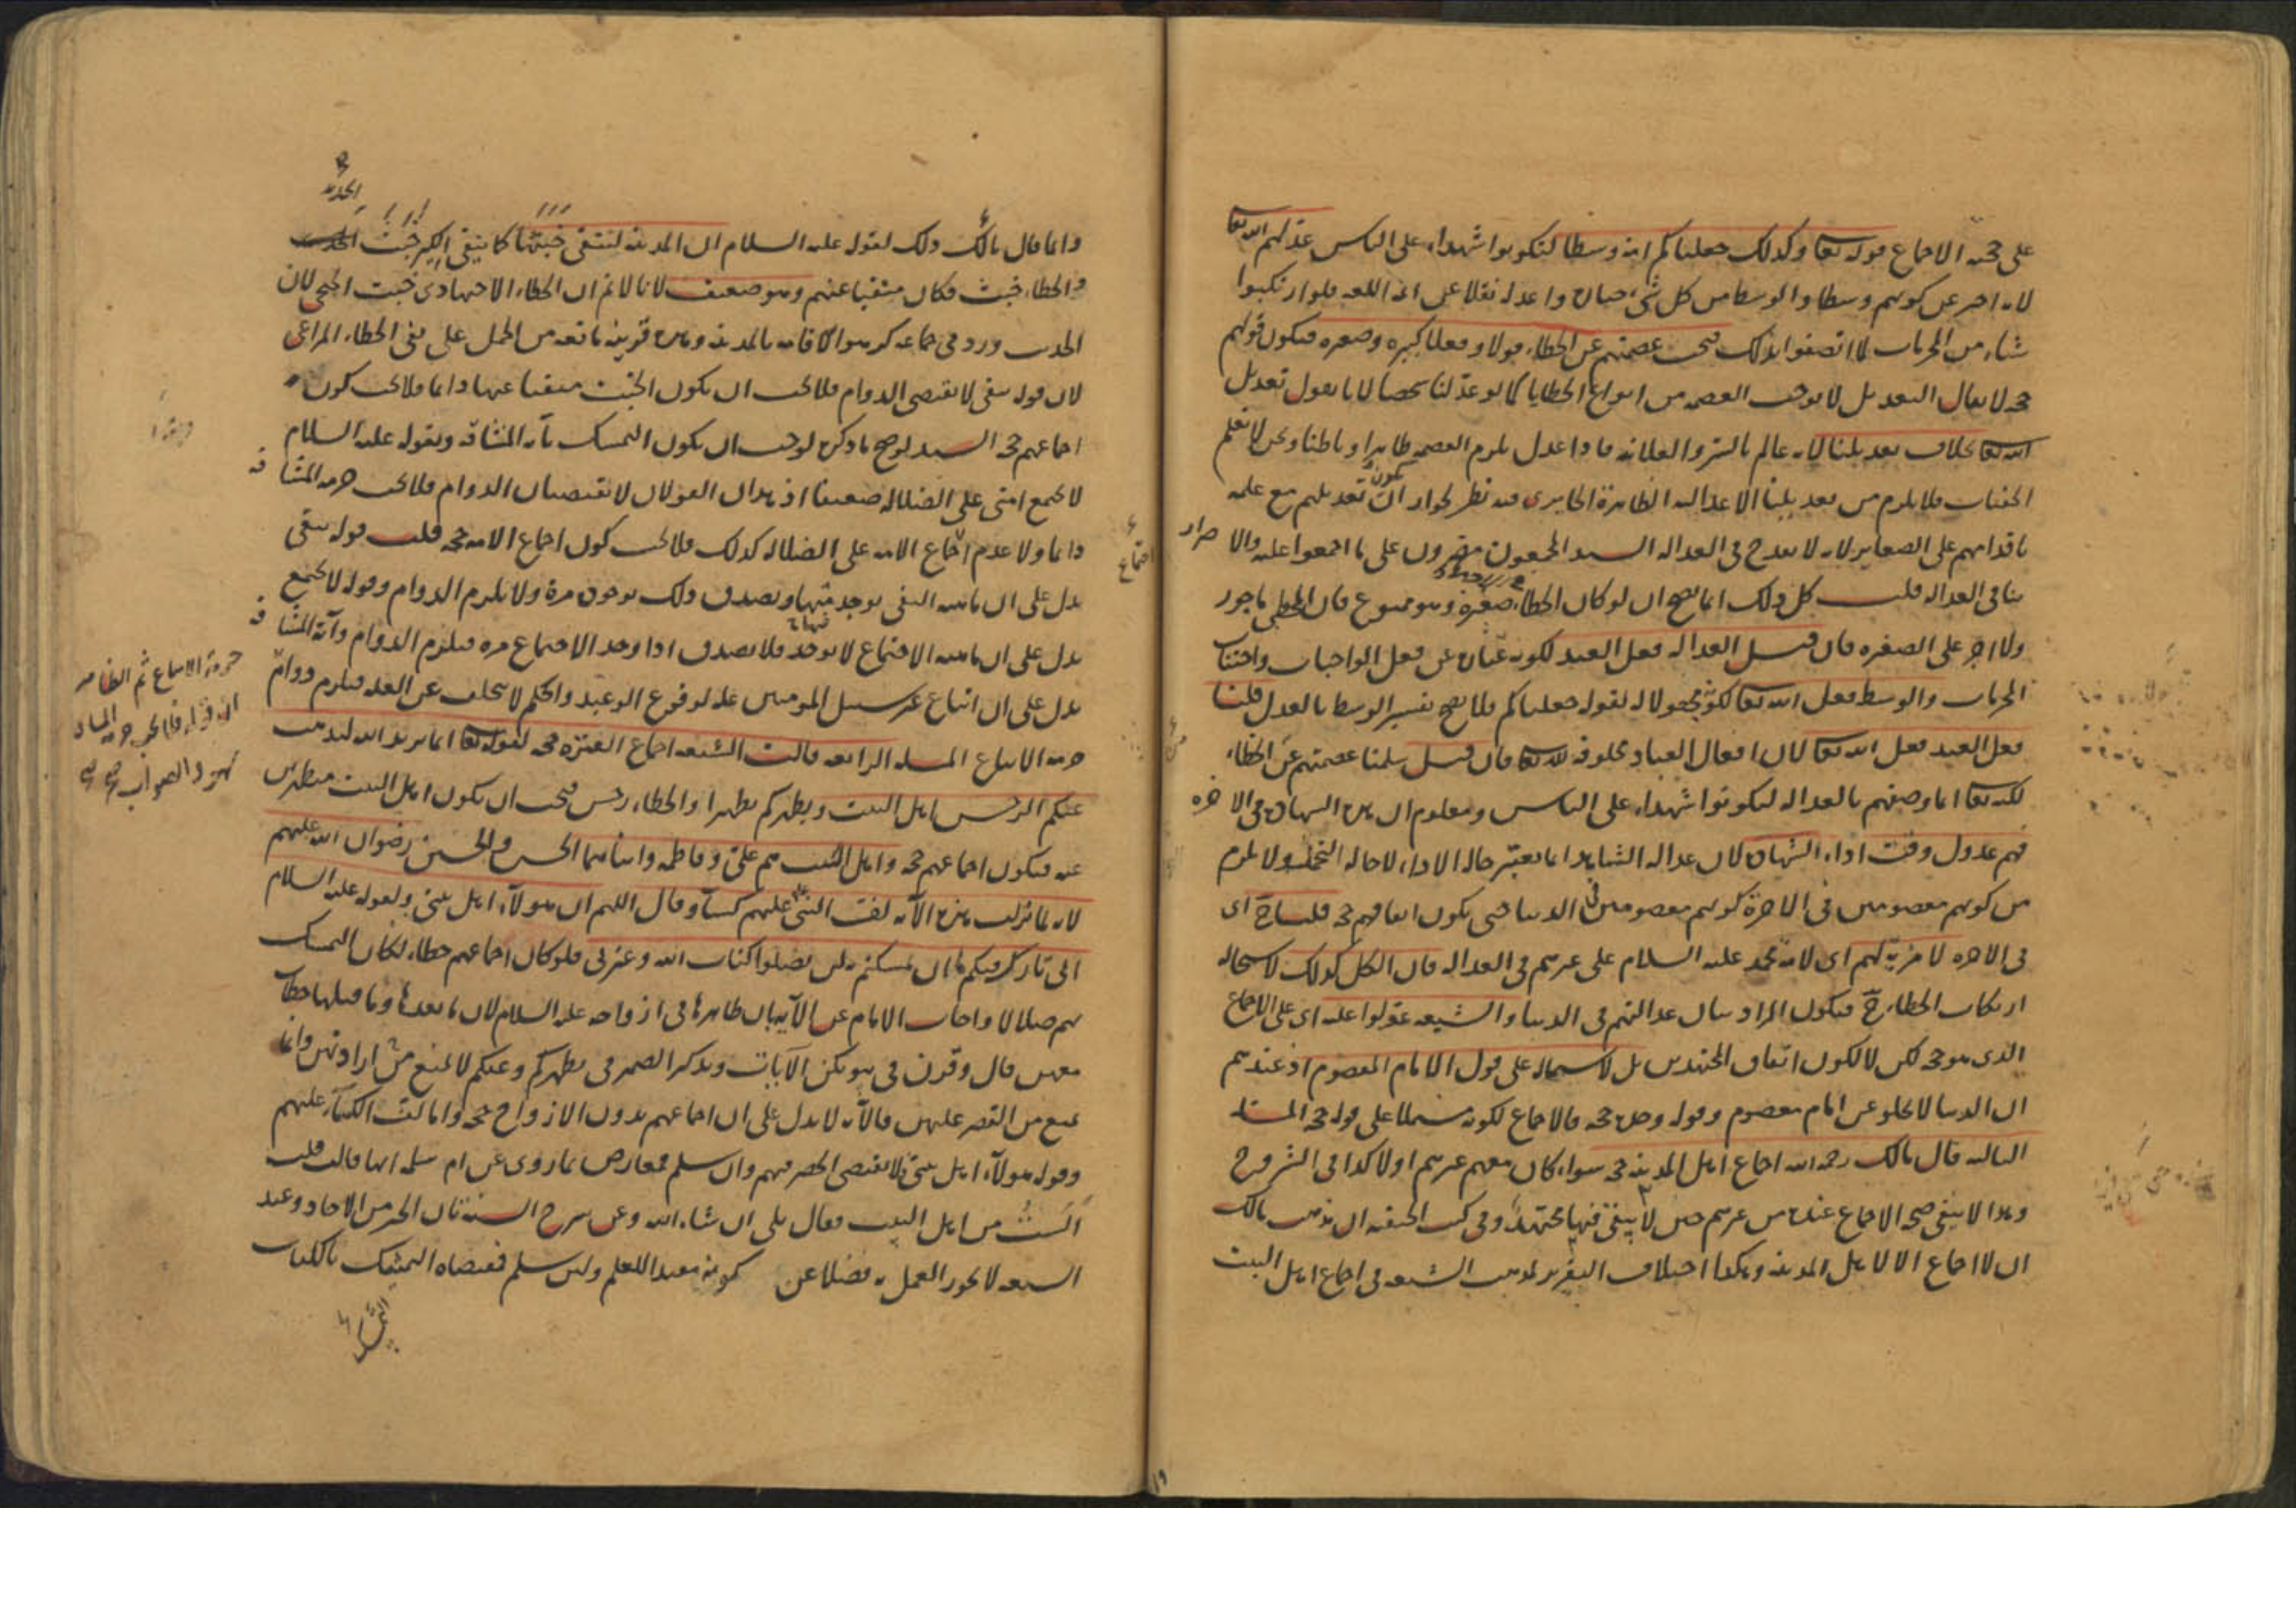 على حجية الاجماع قوله تعا وكذلك جعلناكم امة وسطا لتكونوا شهداء على الناس عدلهم الله تعا
لانه اخبر عن كونهم وسطا والوسط من كل شيء خياره واعدله نقلا عن ائمة اللغة فلو ارتكبوا
شياء من المحرمات لما اتصفوا بذلك فيجب عصمتهم عن الخطاء قولا وفعلا كبيرة وصغيرة فيكون قولهم
حجة لا يقال التعديل لا يوجب العصمة من انواع الخطايا كما لو عدلنا شخصا لانا نقول تعديل
الله تعا بخلاف تعديلنا لانه عالم بالسر والعلانية فاذا عدل يلزم العصمة ظاهرا وباطنا ونحن لا نعلم
الخفيات فلا يلزم من تعديلنا الا عدالته الظاهرة الجابردى فيه نظر لجواز ان يكون تعديلهم مع علمه
باقدامهم على الصغاير لانه لا يقدح في العدالة السيد المجمعون مصرون على ما اجمعوا عليه والاصرار
ينافي العدالة قلت كل ذلك انما يصح ان لو كان الخطاء صغيرة وهو ممنوع فان المخطي ماجور
ولا اجر على الصغيرة فان قيل العدالة فعل العبد لكونه عبارة عن فعل الواجبات واجتناب
المحرمات والوسط فعل الله تعا لكونه مجعولا له لقوله جعلناكم فلا يصح تفسير الوسط بالعدل قلنا
فعل العبد فعل الله تعا لان افعال العباد مخلوقة لله تعا فان قيل سلمنا عصمتهم عن الخطاء
لكنه تعا انما وصفهم بالعدالة ليكونوا شهداء على الناس ومعلوم ان هذه الشهادة في الاخرة
فهم عدول وقت اداء الشهادة لان عدالة الشاهد انما يعتبر حالة الاداء لا حالة التحمل ولا يلزم
من كونهم معصومين في الاخرة كونهم معصومين في الدنيا حتى يكون اتفاقهم حجة قلنا ح اى
في الاخرة لا مزية لهم اى لامة محمد عليه السلام على غيرهم في العدالة فان الكل كذلك لاستحالة
ارتكاب الخطاء ح فيكون المراد بيان عدالتهم في الدنيا والشيعة عولوا عليه اى على الاجماع
الذى هو حجة لكن لا لكون اتفاق المجتهدين بل لاشتماله على قول الامام المعصوم اذ عندهم
ان الدنيا لا يخلو عن امام معصوم وقوله وحده حجة فالاجماع لكونه مشتملا على قوله حجة المسئلة
الثالثة قال مالك رحمه الله اجماع اهل المدينة حجة سواء كان معهم غيرهم اولا كذا في الشروح
وهذا لا ينفي صحة الاجماع عنده من غيرهم حين لا يبقى فيها مجتهد وفي كتب الحنفية ان مذهب مالك
ان لا اجماع الا لاهل المدينة وهكذا اختلاف التقرير لمذهب الشيعة في اجماع اهل البيت
وانما قال مالك ذلك لقوله عليه السلام ان المدينة لتنفى خبثها كما ينفى الكير خبث الحديد
والخطاء خبث فكان منفيا عنهم وهو ضعيف لانا لا نم ان الخطاء الاجتهادى خبث الخ لان
الحديث ورد في جماعة كرهوا الاقامة بالمدينة وهذه قرينة مانعة من الحمل على نفى الخطاء المراغى
لان قوله تنفى لا يقتضى الدوام فلا يجب ان يكون الخبث منفيا عنها دائما فلا يجب كون
اجماعهم حجة السيد لو صح ما ذكره لوجب ان يكون التمسك بآية المشاقة وبقوله عليه السلام
لا تجمع امتى على الضلالة ضعيفا اذ هذان القولان لا يقتضيان الدوام فلا يجب حرمة المشاقة
دائما ولا عدم اجماع الامة على الضلالة كذلك فلا يجب كون اجماع الامة حجة قلت قوله تنفى
يدل على ان ماهية النفى توجد فيها ويصدق ذلك بوجوده مرة ولا يلزم الدوام وقوله لا تجمع
يدل على ان ماهية الاجتماع لا توجد فلا يصدق اذا وجد الاجتماع مرة فيلزم الدوام وآية المشاقة
يدل على ان اتباع غير سبيل المومنين علة لوقوع الوعيد والحكم لا يتخلف عن العلة فيلزم دوام
حرمة الاتباع المسئلة الرابعة قالت الشيعة اجماع العترة حجة لقوله تعا انما يريد الله ليذهب
عنكم الرجس اهل البيت ويطهركم تطهيرا والخطاء رجس فيجب ان يكون اهل البيت مطهرين
عنه فيكون اجماعهم حجة واهل البيت هم على وفاطمة وابناهما الحسن والحسين رضوان الله عليهم
لانه لما نزلت هذه الآية لف النبى عليهم كساء وقال اللهم ان هولاء اهل بيتى ولقوله عليه السلام
انى تارك فيكم ما ان تمسكتم به لن تضلوا كتاب الله وعترتى فلو كان اجماعهم خطاء لكان التمسك
بهم ضلالا واجاب الامام عن الآية بان ظاهرها في ازواجه عليه السلام لان ما بعدها وما قبلها خطاب
معهن قال وقرن في بيوتكن الآيات وتذكير الضمير في يطهركم وعنكم لا يمنع من ارادتهن وانما
يمنع من القصر عليهن فالآية لا يدل على ان اجماعهم بدون الازواج حجة واما لف الكساء عليهم
وقوله هولاء اهل بيتى فلا يقتضى الحصر فيهم وان سلم فمعارض بما روى عن ام سلمة انها قالت قلت
ألست من اهل البيت فقال بلى ان شاء الله وعن شرح السنة بان الخبر من الآحاد وعند
الشيعة لا يجوز العمل به فضلا عن كونه مفيدا للعلم ولئن سلم فمقتضاه التمسك بالكتاب